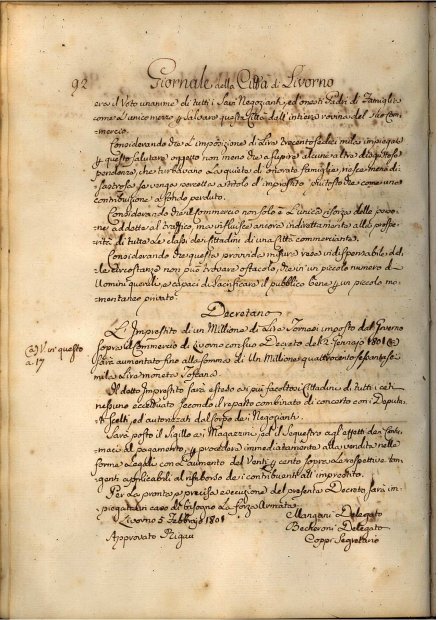 92 Giornale della Città di Livorno
era il Voto unanime di tutti i Savi Negozianti, ed onesti Padri di Famiglia
come L'unico mezzo p. salvare questa Città dall'intiera rovina del suo Com-
mercio.
Considerando che L'imposizione di Lire trecento sedici mila impiegate
p. questo salutare oggetto non meno che a supire alcune altre dispettose
pendenze, che turbavano La quiete di onorate famiglie, riesce meno di-
sastrosa se venga percetta a titolo d'imprestito piuttosto che come una
contribuzione a fondo perduto.
Considerando che il Commercio non solo è L'unica risorsa delle perso-
ne addette al traffico, ma influisce ancora indirettamente alla prospe-
rità di tutte le classi dei Cittadini di una Città commerciante.
Considerando che questa provvida misura resa indispensabile del-
le circostanze non può trovare ostacolo, che in un piccolo numero di
Uomini queruli, e capaci di sacrificare il pubblico bene p. un piccolo mo-
mentaneo privato.
Decretano
L'Imprestito di un Millione di Lire Tornesi imposto dal Governo
sopra il Commercio di Livorno con suo Decreto del 2 Gennajo 1801 (a)
(a) V. in questo
a 17
sarà aumentato fino alla somma di Un Millione quattrocento sessanta se-
mila Lire moneta Toscana.
Il detto Imprestito sarà esteso ai più facoltosi Cittadini di tutti i ceti
nessuno eccettuato secondo il reparto combinato di concerto con i Deputa-
ti scelti, ed autorizzati dal Corpo dei Negozianti.
Sarà posto il Sigillo ai Magazzini, ed il Sequestro agl'effetti dei Contu-
maci al pagamento, e p. procedere immediatamente alla vendita nelle
forme Legali con L'aumento del Venti p. cento sopra Le respettive tan-
genti applicabili al rifabordo dei contribuenti all'imprestito.
Per La pronta e precisa esecuzione del presente Decreto sarà im-
piegata in caso di bisogno La forza Armata.
Livorno 5 Febbrajo 1801
Mangani Delegato
Becheroni Delegato
Approvato Rigau
Coppi Segretario